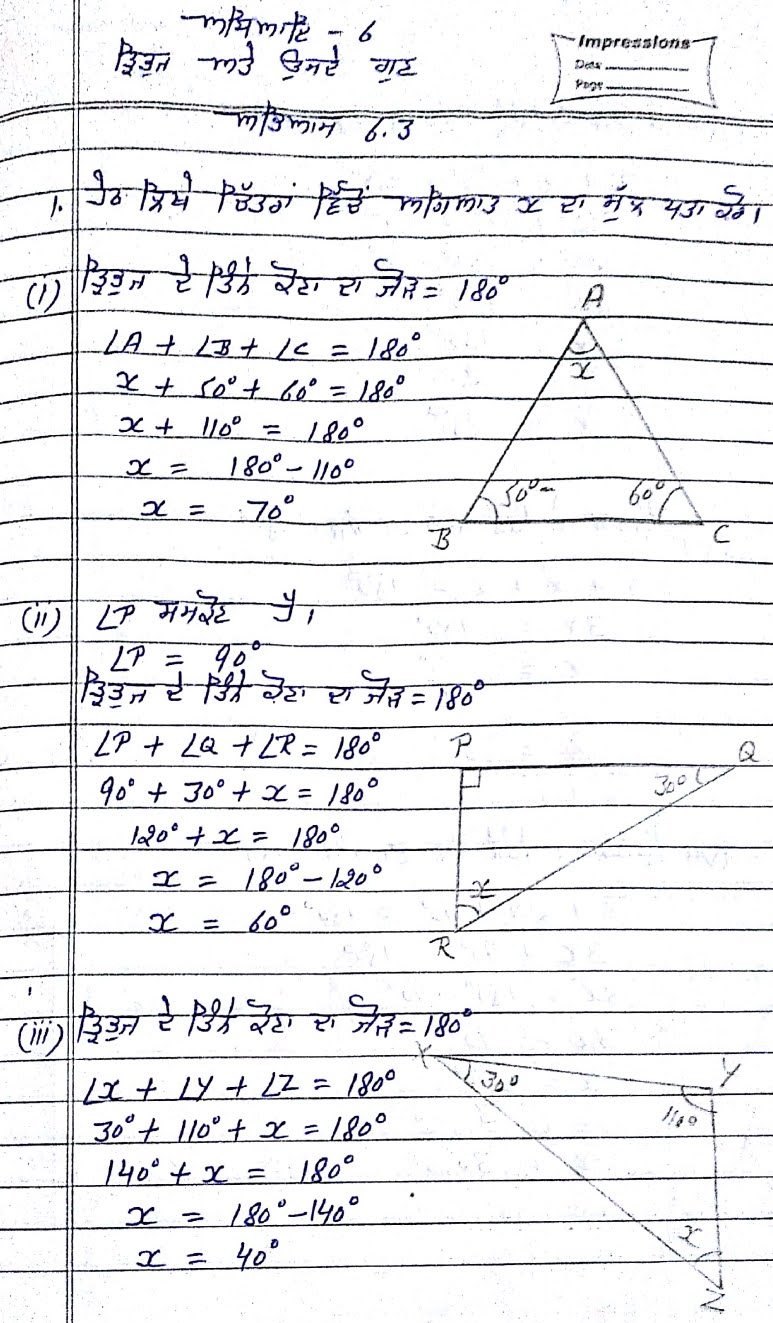 ਅਧਿਆਇ - 9
ਤ੍ਰਿਭੁਜ ਅਤੇ ਉਸਦੇ ਗੁਣ
Impressions
Date
Page
ਅਭਿਆਸ 9.3
1. ਹੇਠ ਲਿਖੇ ਚਿੱਤਰਾਂ ਵਿੱਚੋਂ ਅਗਿਆਤ x ਦਾ ਮੁੱਲ ਪਤਾ ਕਰੋ।
(i) ਤ੍ਰਿਭੁਜ ਦੇ ਤਿੰਨੇ ਕੋਣਾ ਦਾ ਜੋੜ = 180°
∠A + ∠B + ∠C = 180°
x + 50° + 60° = 180°
x + 110° = 180°
x = 180° - 110°
x = 70°
A
x
50°
60°
B
C
(ii) ∠P ਸਮਕੋਣ ਹੈ।
∠P = 90°
ਤ੍ਰਿਭੁਜ ਦੇ ਤਿੰਨੇ ਕੋਣਾ ਦਾ ਜੋੜ = 180°
∠P + ∠Q + ∠R = 180°
90° + 30° + x = 180°
120° + x = 180°
x = 180° - 120°
x = 60°
P
Q
30°
x
R
(iii) ਤ੍ਰਿਭੁਜ ਦੇ ਤਿੰਨੇ ਕੋਣਾ ਦਾ ਜੋੜ = 180°
∠X + ∠Y + ∠Z = 180°
30° + 110° + x = 180°
140° + x = 180°
x = 180° - 140°
x = 40°
X
30°
Y
110°
x